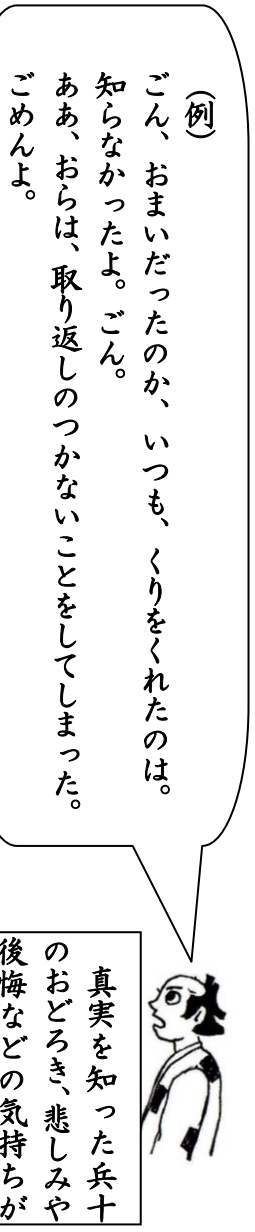 (例)
ごん、おまいだったのか、いつも、くりをくれたのは。
知らなかったよ。ごん。
ああ、おらは、取り返しのつかないことをしてしまった。
ごめんよ。
真実を知った兵十
のおどろき、悲しみや
後悔などの気持ちが